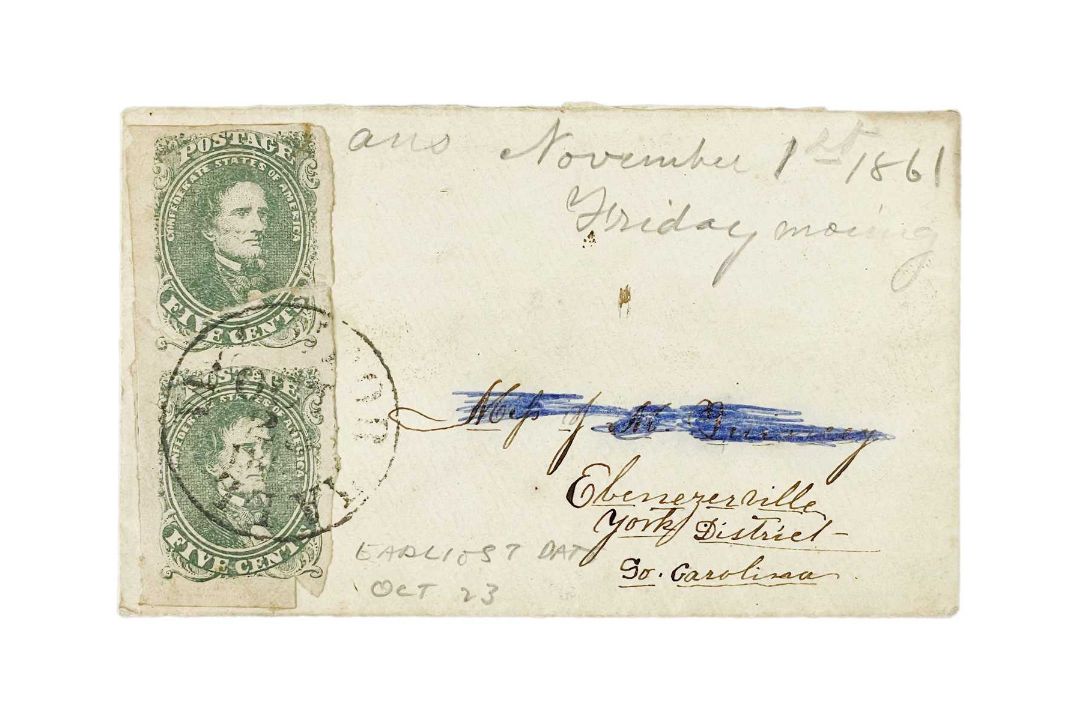 POSTAGE
CONFEDERATE STATES OF AMERICA
FIVE CENTS
POSTAGE
FIVE CENTS
ans November 1st 1861
Friday moring
of
Ebenezerville
York District-
So. Carolina
EARLIEST DAT
OCT 23